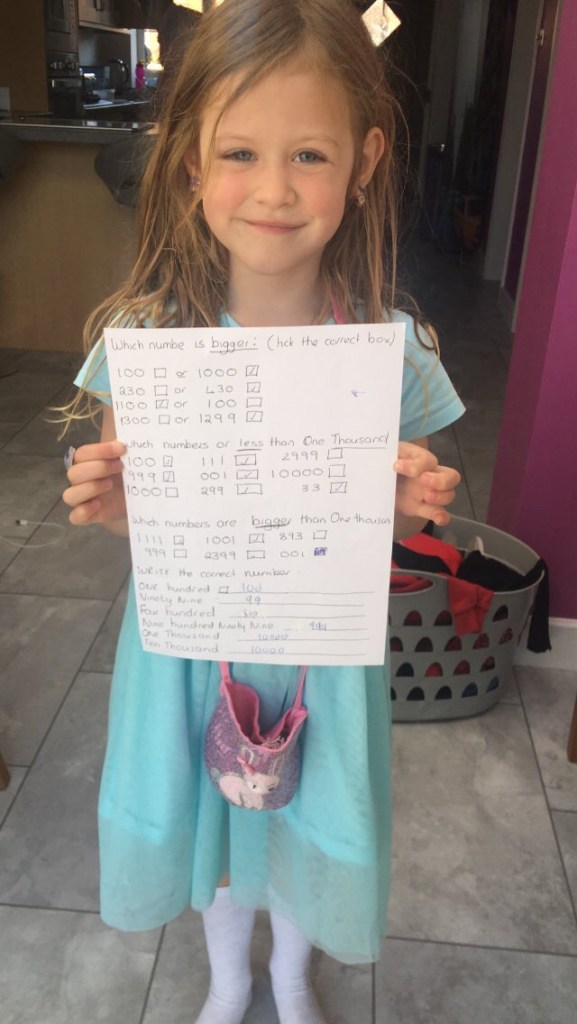 Which numbe is bigger: (tick the correct box)
100 or 1000
230 or 430
1100 or 100
1300 or 1299
which numbers or less than One Thousand
100 111 2999
999 001 10000
1000 299 33
Which numbers are bigger than One thousan
1111 1001 893
999 2399 001
WRITE the correct number
One hundred 100
Ninety Nine 99
Four hundred
Nine hundred Ninety Nine 999
One Thousand
Ten Thousand 10000